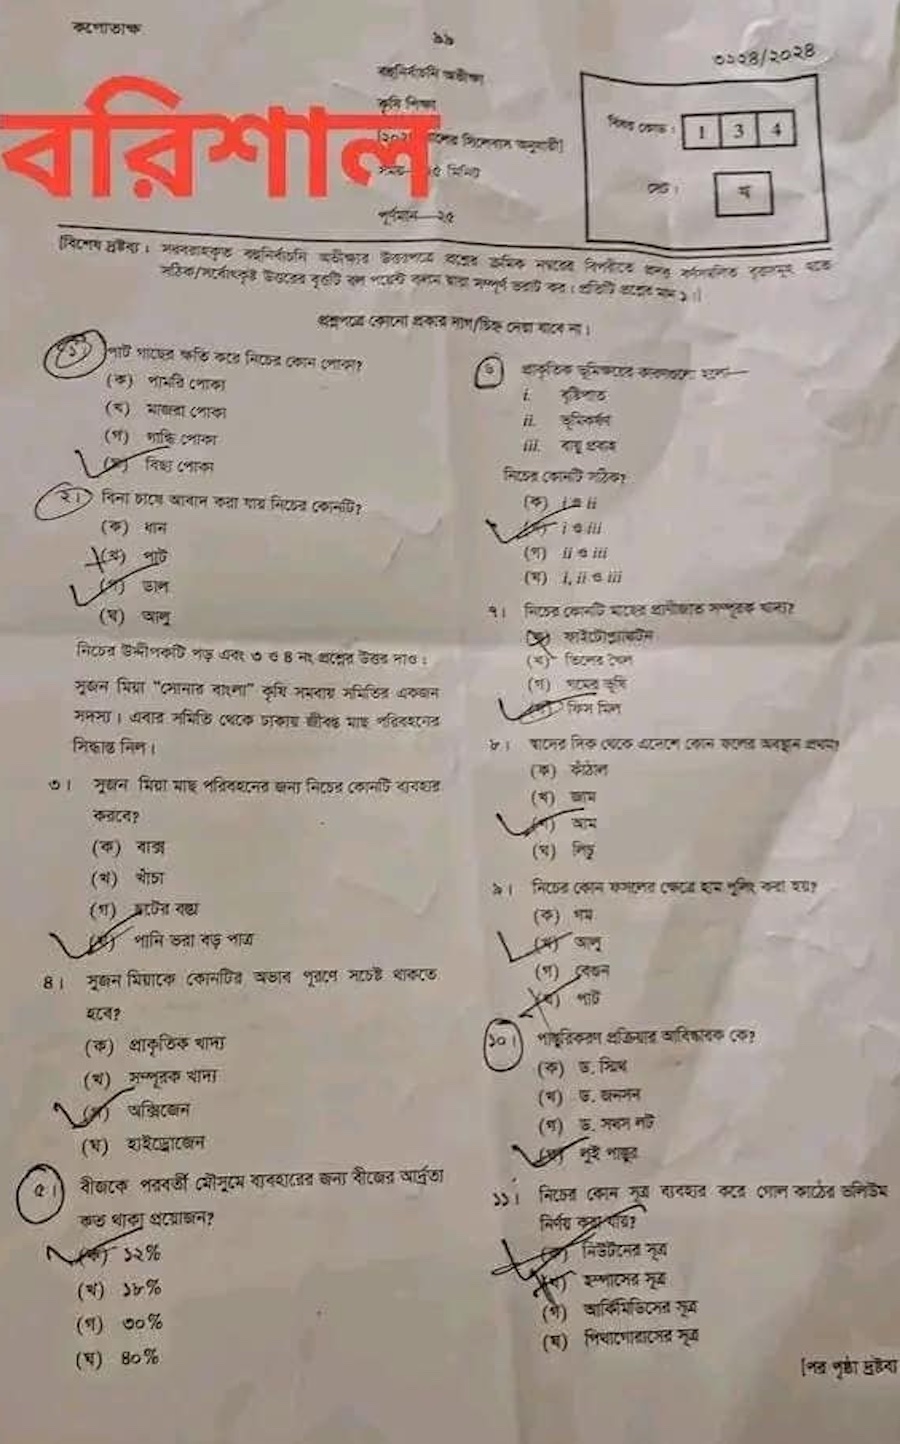 কপোতাক্ষ
৯৯
৩১২৪/২০২৪
বহুনির্বাচনি অভীক্ষা
কৃষি শিক্ষা
বরিশাল
সিলেবাস অনুযায়ী]
সময়— ২৫ মিনিট
পূর্ণমান—২৫
বিষয় কোড : 1 3 4
সেট :
[বিশেষ দ্রষ্টব্য : সরবরাহকৃত বহুনির্বাচনি অভীক্ষার উত্তরপত্রে প্রশ্নের ক্রমিক নম্বরের বিপরীতে প্রদত্ত বর্ণসম্বলিত বৃত্তসমূহ হতে
সঠিক/সর্বোৎকৃষ্ট উত্তরের বৃত্তটি বল পয়েন্ট কলম দ্বারা সম্পূর্ণ ভরাট কর। প্রতিটি প্রশ্নের মান ১।]
প্রশ্নপত্রে কোনো প্রকার দাগ/চিহ্ন দেয়া যাবে না।
১। পাট গাছের ক্ষতি করে নিচের কোন পোকা?
(ক) পামরি পোকা
(খ) মাজরা পোকা
(গ) গান্ধি পোকা
(ঘ) বিছা পোকা
২। বিনা চাষে আবাদ করা যায় নিচের কোনটি?
(ক) ধান
(খ) পাট
(গ) ডাল
(ঘ) আলু
নিচের উদ্দীপকটি পড় এবং ৩ ও ৪ নং প্রশ্নের উত্তর দাও :
সুজন মিয়া "সোনার বাংলা" কৃষি সমবায় সমিতির একজন
সদস্য। এবার সমিতি থেকে ঢাকায় জীবন্ত মাছ পরিবহনের
সিদ্ধান্ত নিল।
৩। সুজন মিয়া মাছ পরিবহনের জন্য নিচের কোনটি ব্যবহার
করবে?
(ক) বাক্স
(খ) খাঁচা
(গ) চটের বস্তা
(ঘ) পানি ভরা বড় পাত্র
৪। সুজন মিয়াকে কোনটির অভাব পূরণে সচেষ্ট থাকতে
হবে?
(ক) প্রাকৃতিক খাদ্য
(খ) সম্পূরক খাদ্য
(গ) অক্সিজেন
(ঘ) হাইড্রোজেন
৫। বীজকে পরবর্তী মৌসুমে ব্যবহারের জন্য বীজের আর্দ্রতা
কত থাকা প্রয়োজন?
(ক) ১২%
(খ) ১৮%
(গ) ৩০%
(ঘ) ৪০%
৬ প্রাকৃতিক ভূমিক্ষয়ের কারণগুলো হলো—
i. বৃষ্টিপাত
ii. ভূমিকর্ষণ
iii. বায়ু প্রবাহ
নিচের কোনটি সঠিক?
(ক) i ও ii
(খ) i ও iii
(গ) ii ও iii
(ঘ) i, ii ও iii
৭। নিচের কোনটি মাছের প্রাণীজাত সম্পূরক খাদ্য?
(ক) ফাইটোপ্লাঙ্কটন
(খ) তিলের খৈল
(গ) গমের ভূষি
(ঘ) ফিস মিল
৮। স্বাদের দিক থেকে এদেশে কোন ফলের অবস্থান প্রথম?
(ক) কাঁঠাল
(খ) জাম
(গ) আম
(ঘ) লিচু
৯। নিচের কোন ফসলের ক্ষেত্রে হাম পুলিং করা হয়?
(ক) গম
(খ) আলু
(গ) বেগুন
(ঘ) পাট
১০। পাস্তুরিকরণ প্রক্রিয়ার আবিষ্কারক কে?
(ক) ড. স্মিথ
(খ) ড. জনসন
(গ) ড. সথস লট
(ঘ) লুই পাস্তুর
১১। নিচের কোন সূত্র ব্যবহার করে গোল কাঠের ভলিউম
নির্ণয় করা যায়?
(ক) নিউটনের সূত্র
(খ) হপ্পাসের সূত্র
(গ) আর্কিমিডিসের সূত্র
(ঘ) পিথাগোরাসের সূত্র
[পর পৃষ্ঠা দ্রষ্টব্য